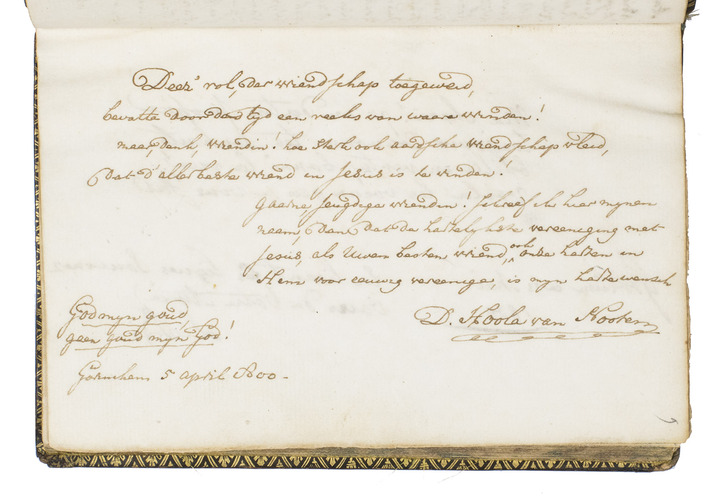 Deez' rol, der vriendschap toegeweid,
bevatte door den tyd een reeks van waare vrinden!
maar, denk, vriendin! hoe sterk ook aardsche vriendschap vleid,
Dat d'allerbeste vriend in Jesus is te vinden!
Gaarne, jeugdige vriendin! schreef ik hier mynen
naam, Dank dat de hartelykste vereeniging met
Jesus, als Uwen besten vriend, ook onze harten in
Hem voor eeuwig vereenige, is myn harte wensch
D. Hoola van Nooten
God myn goud
geen goud myn God!
Gorinchem 5 april 1800 -